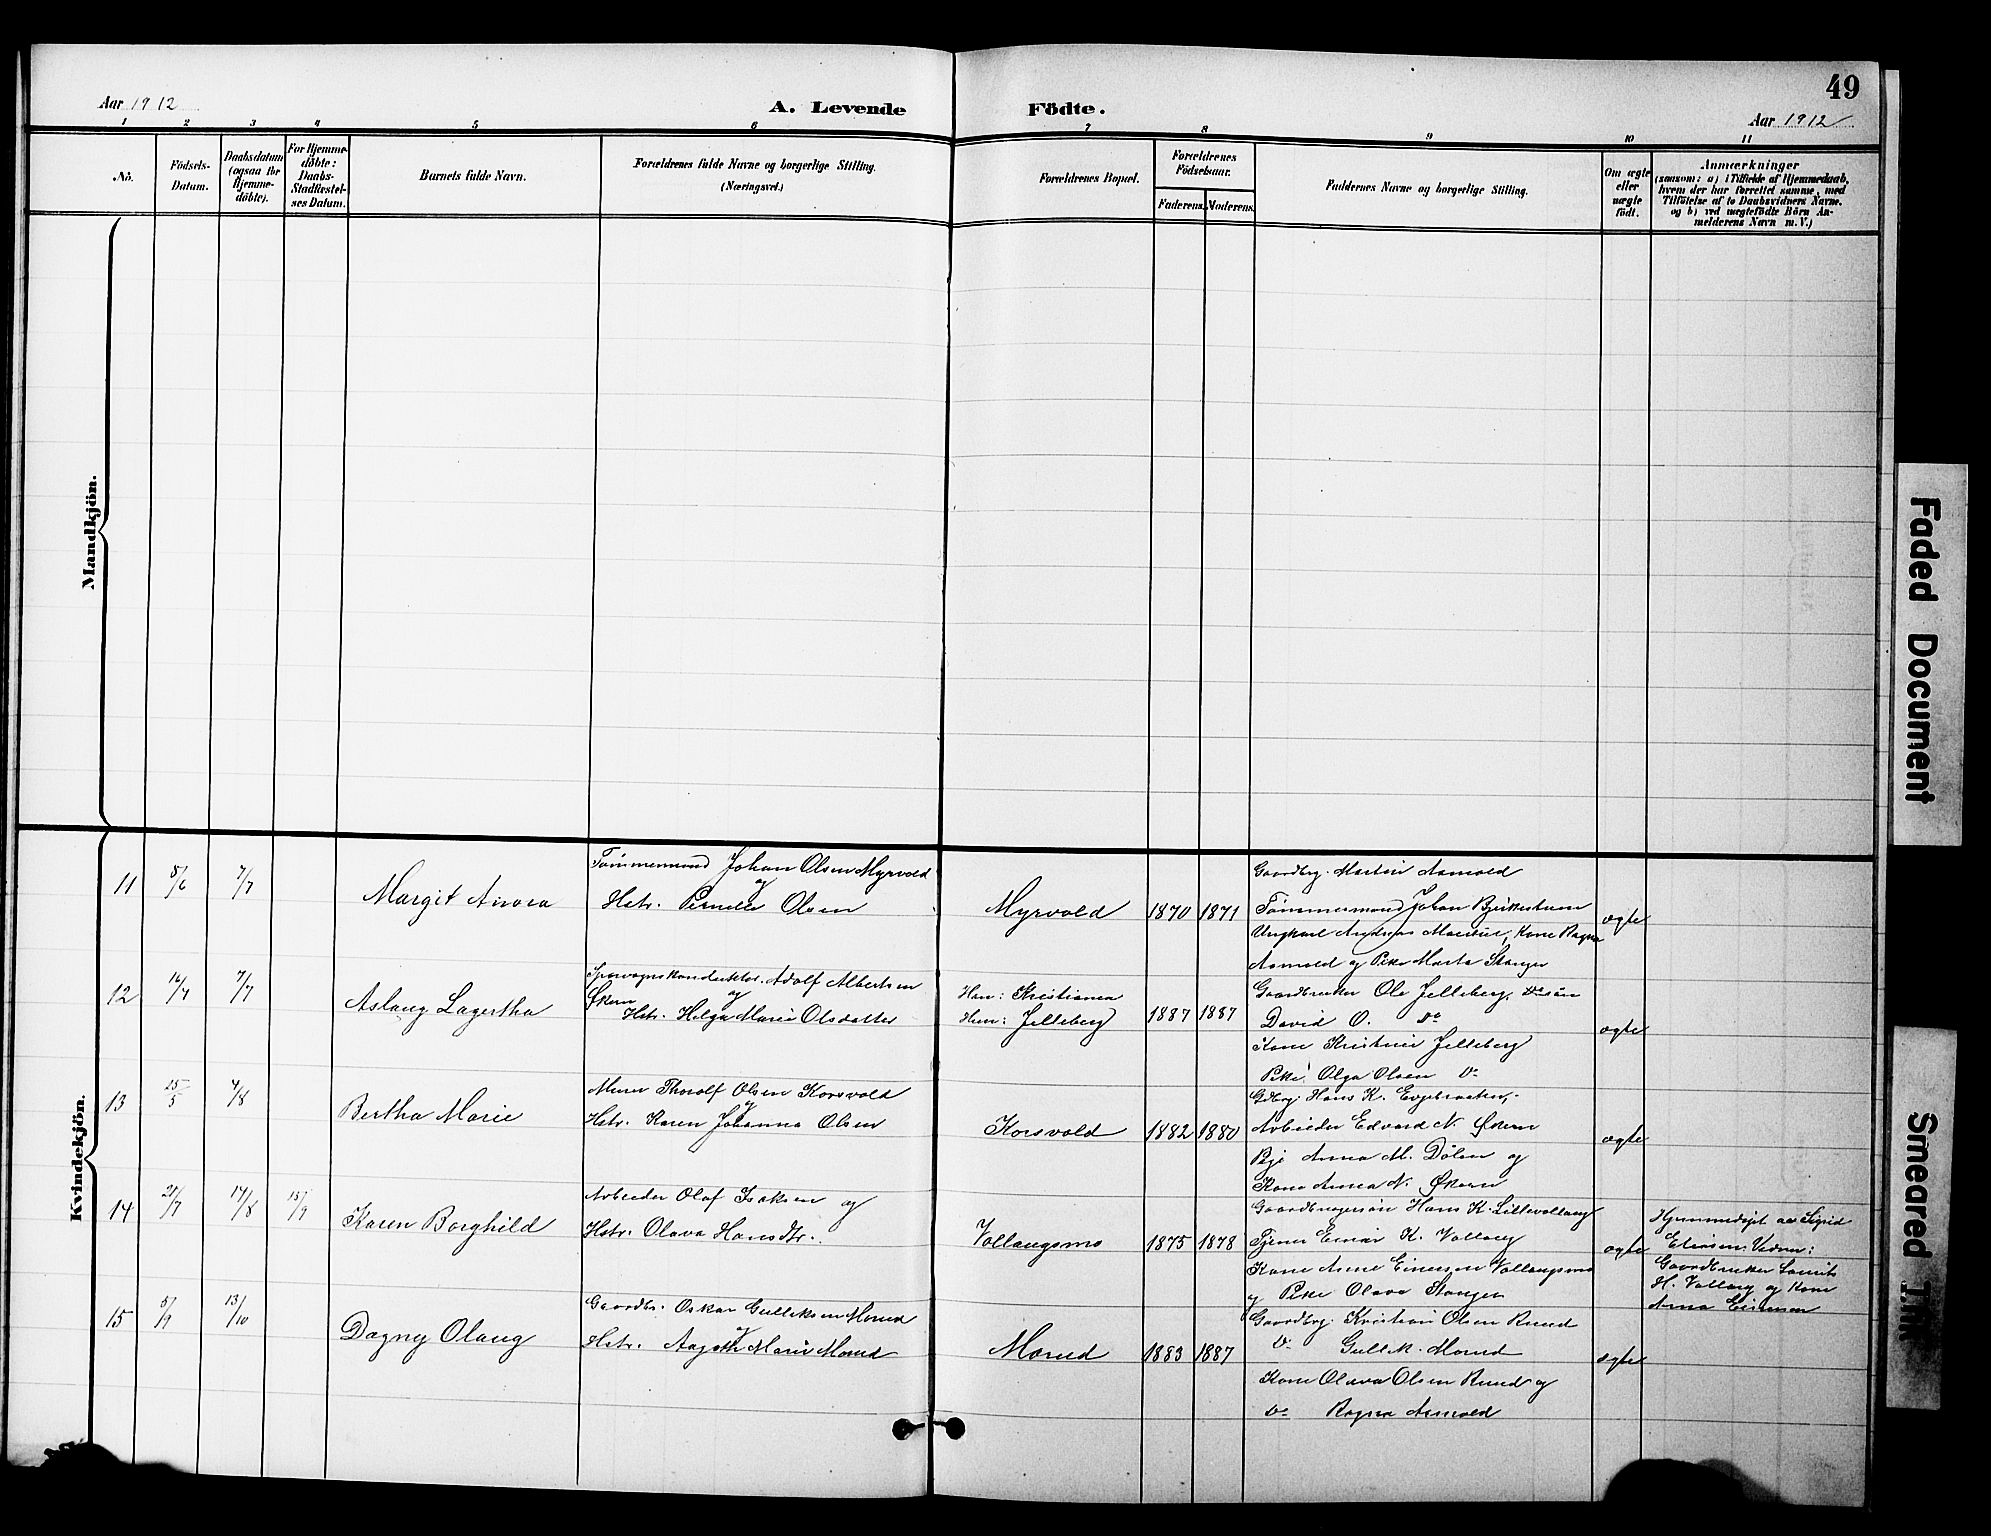 49
Aar 1912
A. Levende
Födte.
Aar 1912
1 2 3 4 5 6 7 8 9 10 11
No.
Födsels-Datum.
Daabsdatum (ogsaa for Hjemme-döbte).
For Hjemme-döbte: Daabs-Stadfæstel-ses Datum.
Barnets fulde Navn.
Forældrenes fulde Navne og borgerlige Stilling.
(Næringsvei.)
Forældrenes Bopæl.
Forældrenes Födselsaar.
Faderens. Moderens.
Faddernes Navne og borgerlige Stilling.
Om ægte eller uægte födt.
Anmærkninger
(saasom: a) i Tilfælde af Hjemmedaab,
hvem der har forrettet samme, med
Tilföielse af to Daabsvidners Navne.
og b) ved uægtefödte Börn An-
melderens Navn m. V.)
Mandkjön.
Kvindekjön.
11 5/6 7/7
Margit Aurora
Tømmermand Johan Olsen Myrvold
og
Hstr. Pernelle Olsen
Myrvold 1870 1871
Gaardbrg. Martin Asmold
Tømmermand Johan Bjerkestuen
Ungkarl Andreas, Kone Ragna
Asmold og Pike Marta Stanger
ægte
12 16/4 7/7
Aslaug Lagertha
Sporvognskonduktør Adolf Albertsen
Økern og
Hstr. Helga Marie Olsdatter
Han: Kristiania
Hun: Jelleberg
1887 1887
Gaardbruker Ole Jelleberg,
David O. Do
Kone Kristine Jelleberg
Pike Olga Olsen Do
ægte
13 25/5 4/8
Bertha Marie
Murer Thorolf Olsen Korsvold
og
Hstr. Karen Johanna Olsen
Korsvold 1882 1880
Gdbrg. Hans K.
Arbeider Edvard N. Økern
Pige Anna M. Dølen og
Kone Anna N. Økern
ægte
14 21/7 14/8 15/9
Karen Borghild
Arbeider Olaf Isaksen og
Hstr. Olava Hansdtr.
Vollaugsmo 1875 1878
Gaardbrugersøn Hans K. Lillevollaug
Tjener Einar K. Vollaug
Kone Anne Einersen Vollaugsmo
og Pike Olava Stanger
ægte
Hjemmedøpt av Sigrid
Gaardbruker
H. Vollaug og Kone
Anna Einersen
15 5/9 13/10
Dagny Olaug
Gaardbr. Oskar Gulliksen Morud
og
Hstr. Aagoth Marie Morud
Morud 1883 1887
Gaardbrg. Kristian Olsen Ruud
Do Gullik Morud
Kone Olava Olsen Ruud og
Do Ragna Asmold
ægte
Faded Document
Smeared Ink